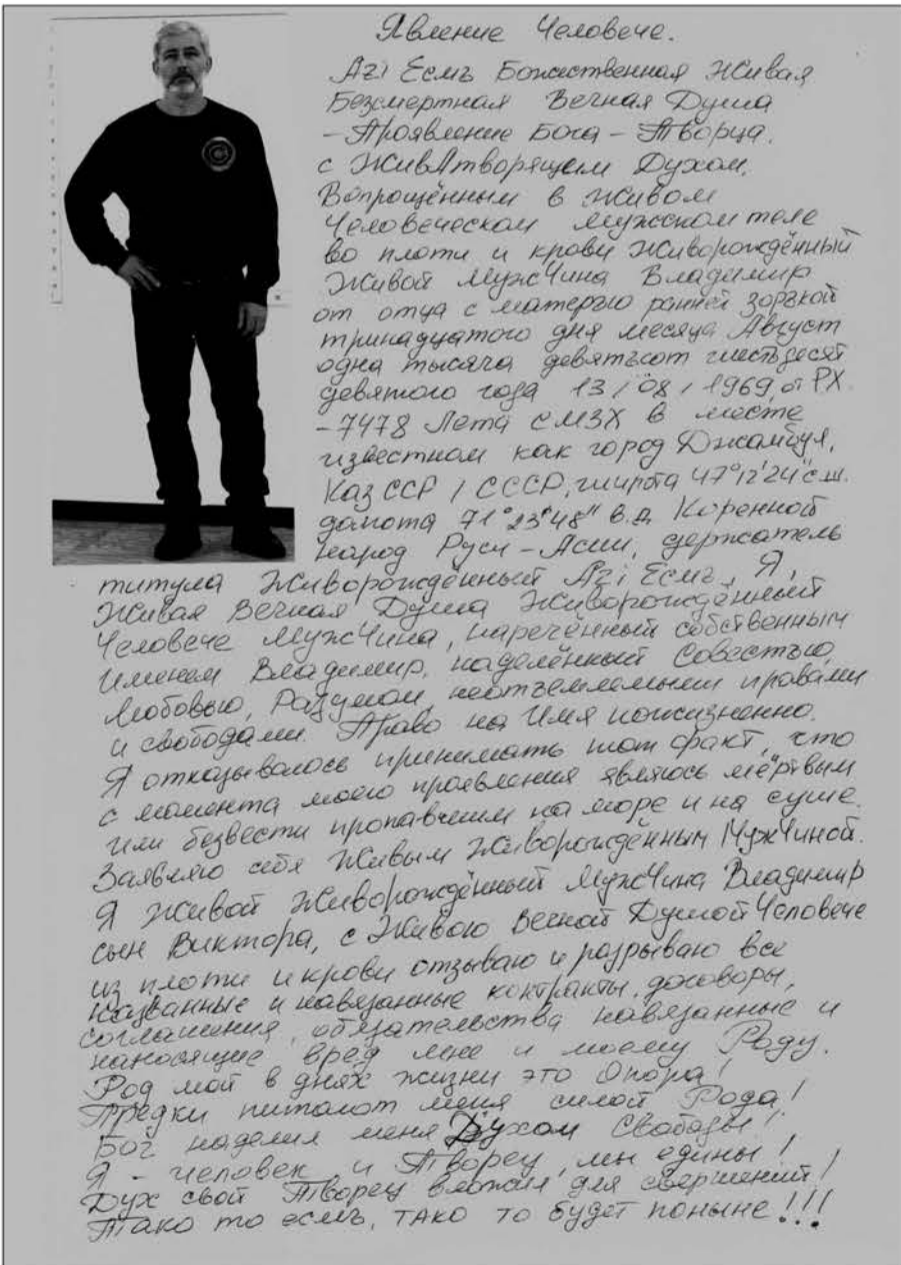 Явление Человече.
Азъ Есмь Божественная Живая
Безсмертная Вечная Душа
-Проявление Бога - Творца.
с ЖивАтворящем Духом,
Вопрощённым в живом
Человеческом мужском теле
во плоти и крови Живорождённый
Живой МужЧина Владимир
от отца с матерью ранней зорькой
тринадцатого дня месяца Август
одна тысяча девятьсот шестьдесят
девятого года 13/08/1969, от РХ.
-7478 Лета СМЗХ в месте
известном как город Джамбул,
Каз ССР / СССР, широта 47°12'24" с.ш.
долгота 71°23'48" в.д. Коренной
народ Руси-Асии, держатель
титула Живорождённый Азъ Есмь, Я,
Живая Вечная Душа Живорождённый
Человече МужЧина, наречённый собственным
именем Владимир, наделённый Совестью,
Любовью, Разумом, неотъемлемыми правами
и свободами. Право на Имя пожизненно.
Я отказываюсь принимать тот факт, что
с момента моего проявления являюсь мёртвым
или безвести пропавшим на море и на суше.
Заявляю себя Живым Живорождённым МужЧиной.
Я Живой Живорождённый МужЧина Владимир
сын Виктора, с Живою Вечной Душой Человече
из плоти и крови отзываю и разрываю все
названные и навязанные контракты, договоры,
соглашения, обязательства навязанные и
наносящие вред мне и моему Роду.
Род мой в днях жизни это Опора!
Предки питают меня силой Рода!
Бог наделил меня Духом Свободы!
Я - человек и Творец, мы едины!
Дух свой Творец вложил для свершений!
Тако то есмь, тако то будет поныне!!!